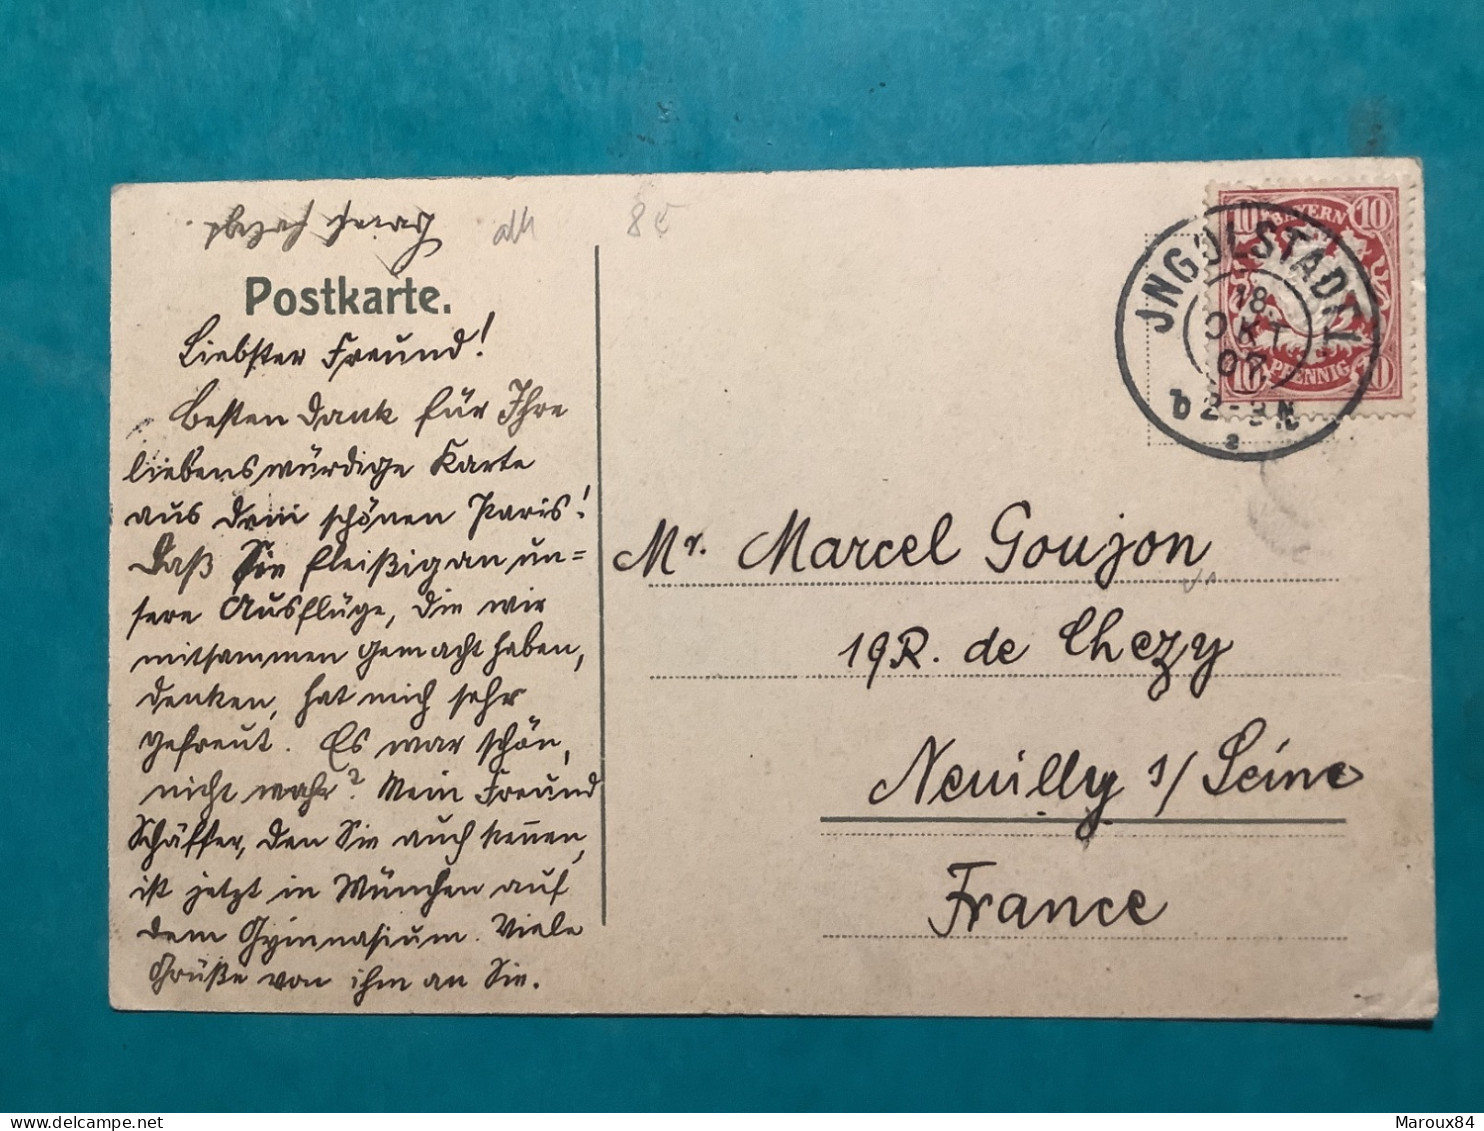 8 €
Postkarte.
Liebster Freund!
Besten Dank für Ihre
liebenswürdige Karte
aus dem schönen Paris!
Daß Sie fleißig an un=
sere Ausflüge, die wir
mitsammen gemacht haben,
denken, hat mich sehr
gefreut. Es war schön,
nicht wahr? Mein Freund
Schäffer, den Sie auch kennen,
ist jetzt in München auf
dem Gymnasium. Viele
Grüße von ihm an Sie.
10 BAYERN 10
10 PFENNIG 10
JNGOLSTADT 1.
18.
OKT
07.
b 2-3 N.
Mr. Marcel Goujon
19 R. de Chezy
Neuilly s/ Seine
France
Maroux84